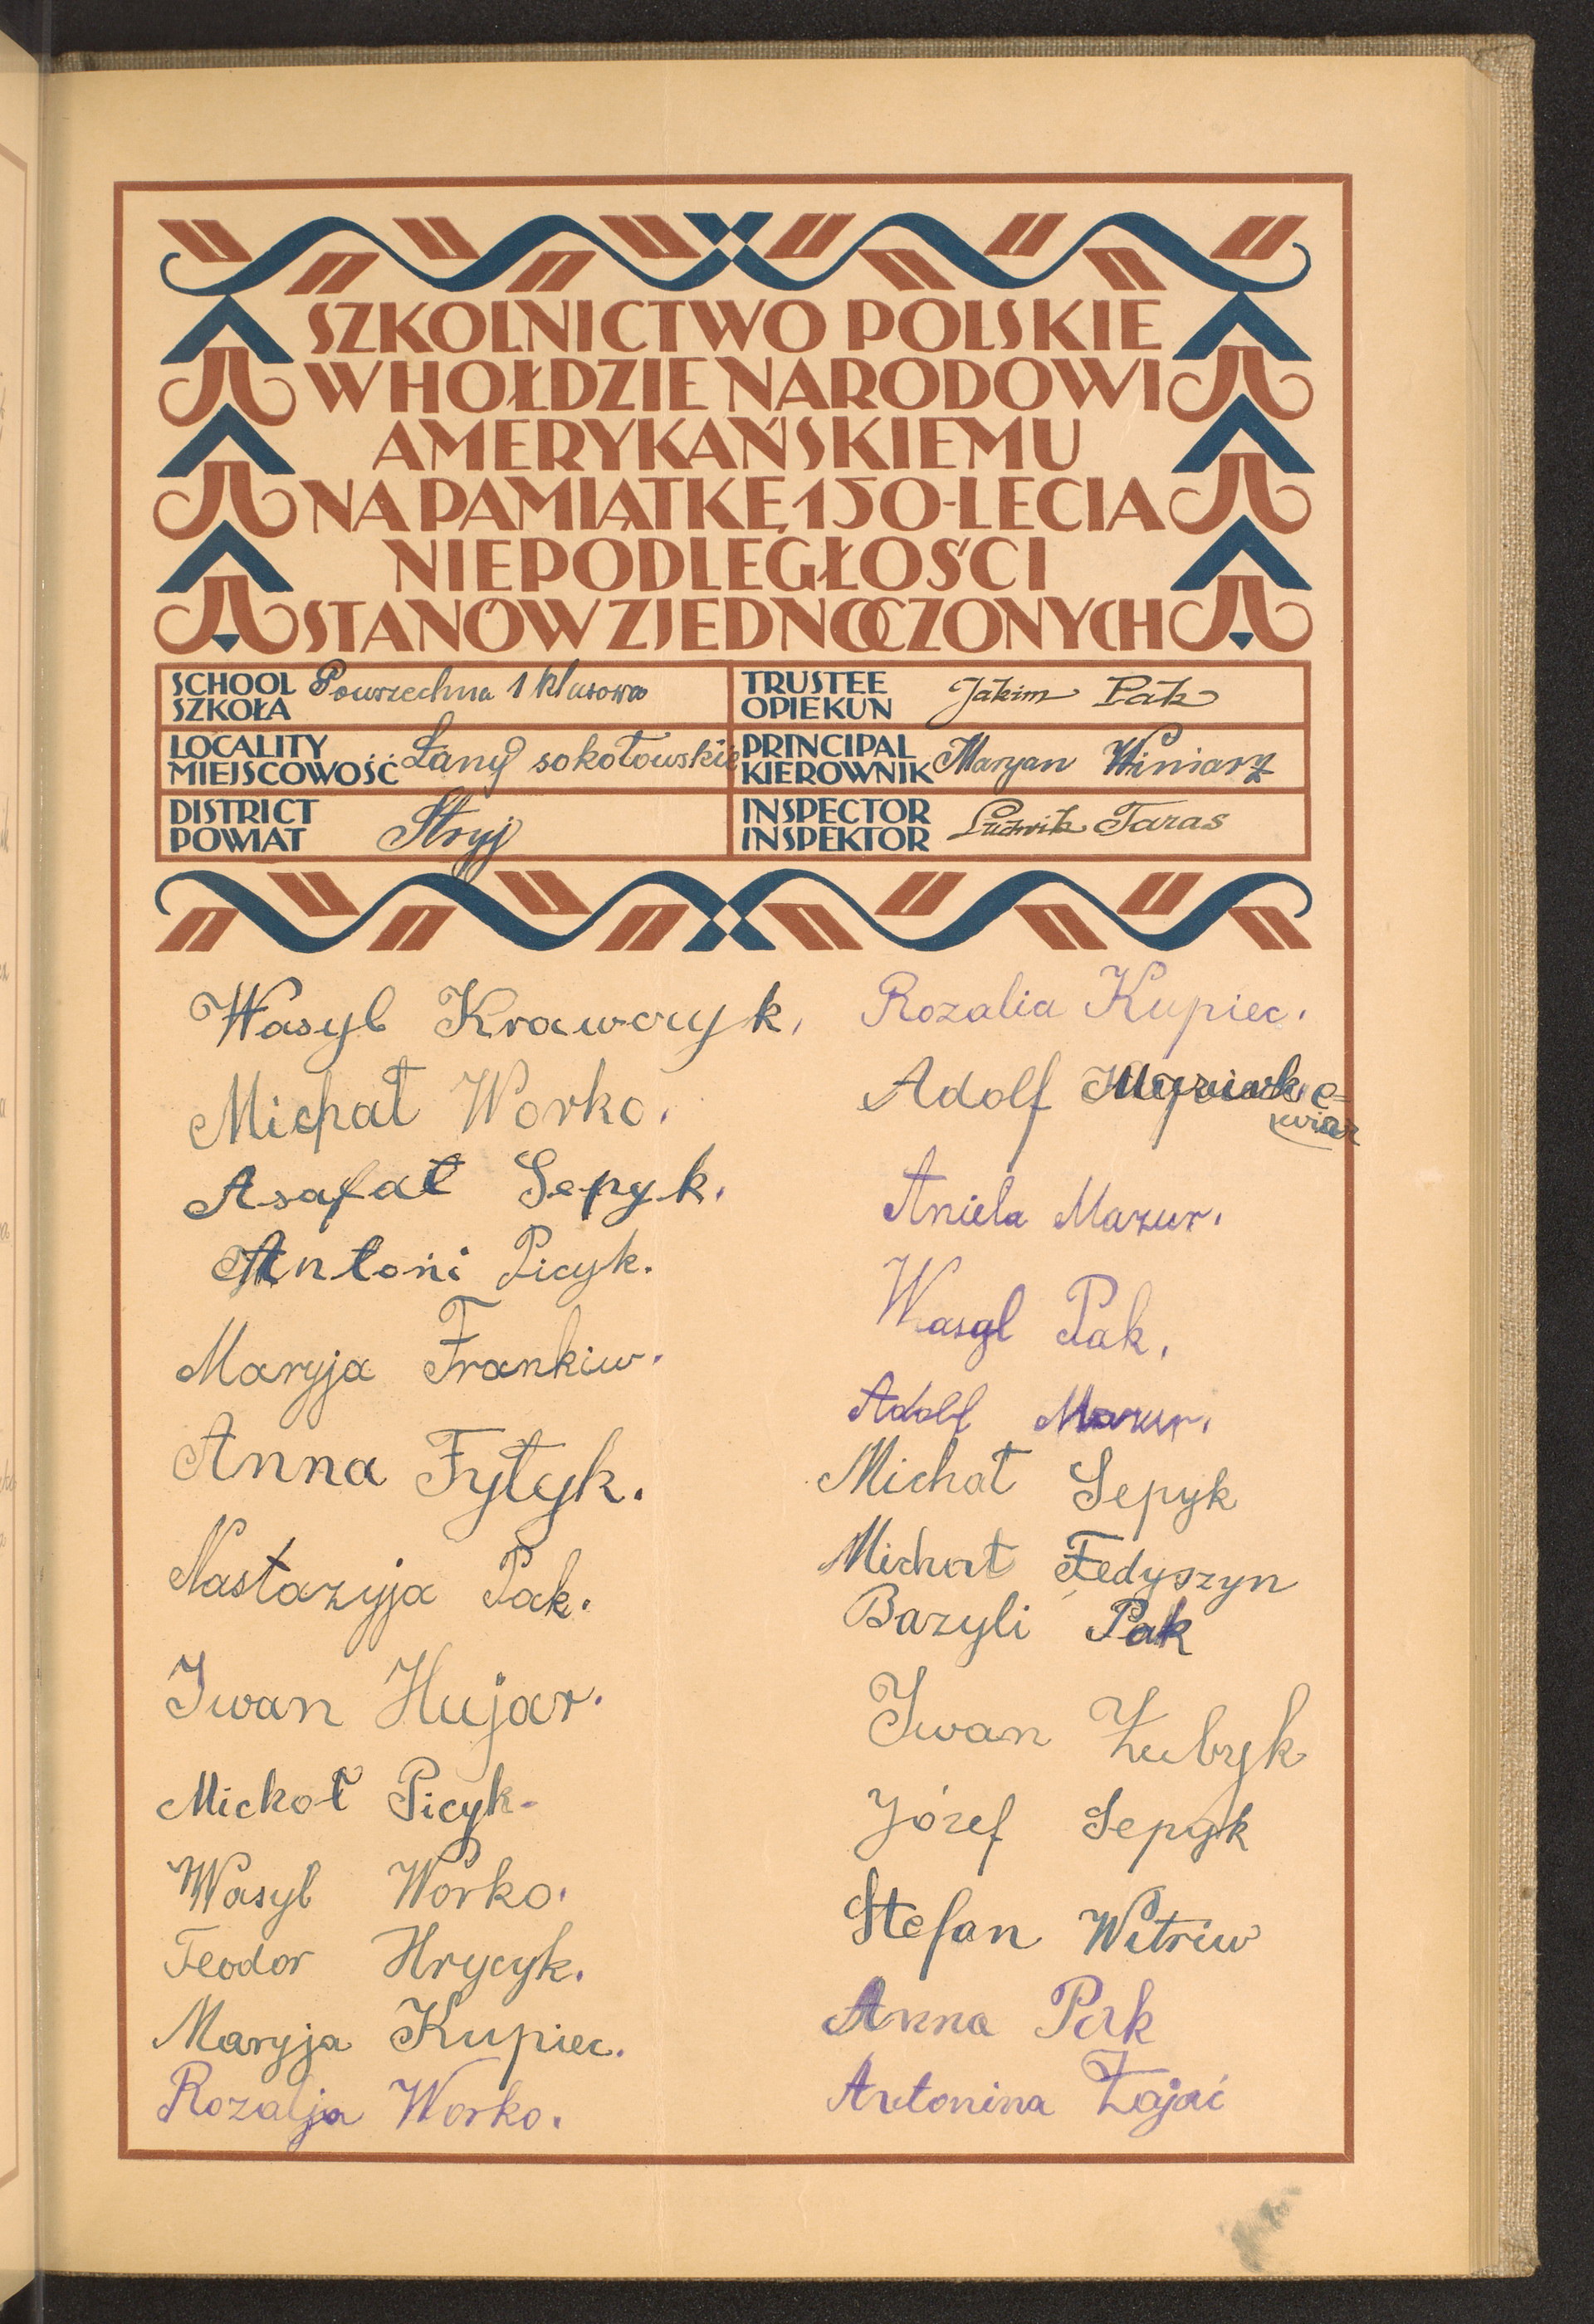 SZKOLNICTWO POLSKIE
W HOŁDZIE NARODOWI
AMERYKAŃSKIEMU
NA PAMIĄTKĘ 150-LECIA
NIEPODLEGŁOŚCI
STANÓW ZJEDNOCZONYCH
SCHOOL
SZKOŁA
Powszechna 1 klasowa
TRUSTEE
OPIEKUN
Jakim Pak
LOCALITY
MIEJSCOWOŚĆ
Łany sokołowskie
PRINCIPAL
KIEROWNIK
Maryan Winiarz
DISTRICT
POWIAT
Stryj
INSPECTOR
INSPEKTOR
Ludwik Taras
Wasyl Krawczyk,
Michał Worko.
Asafat Sepyk.
Antoni Picyk.
Maryja Frankiw.
Anna Fytyk.
Nastazyja Pak.
Iwan Hujar.
Michał Picyk.
Wasyl Worko.
Teodor Hrycyk.
Maryja Kupiec.
Rozalja Worko.
Rozalia Kupiec.
Adolf
Aniela Mazur.
Wasyl Pak.
Adolf Mazur.
Michał Sepyk
Michał Fedyszyn
Bazyli Pak
Iwan Zubryk
Józef Sepyk
Stefan Witriw
Anna Pak
Antonina Zając